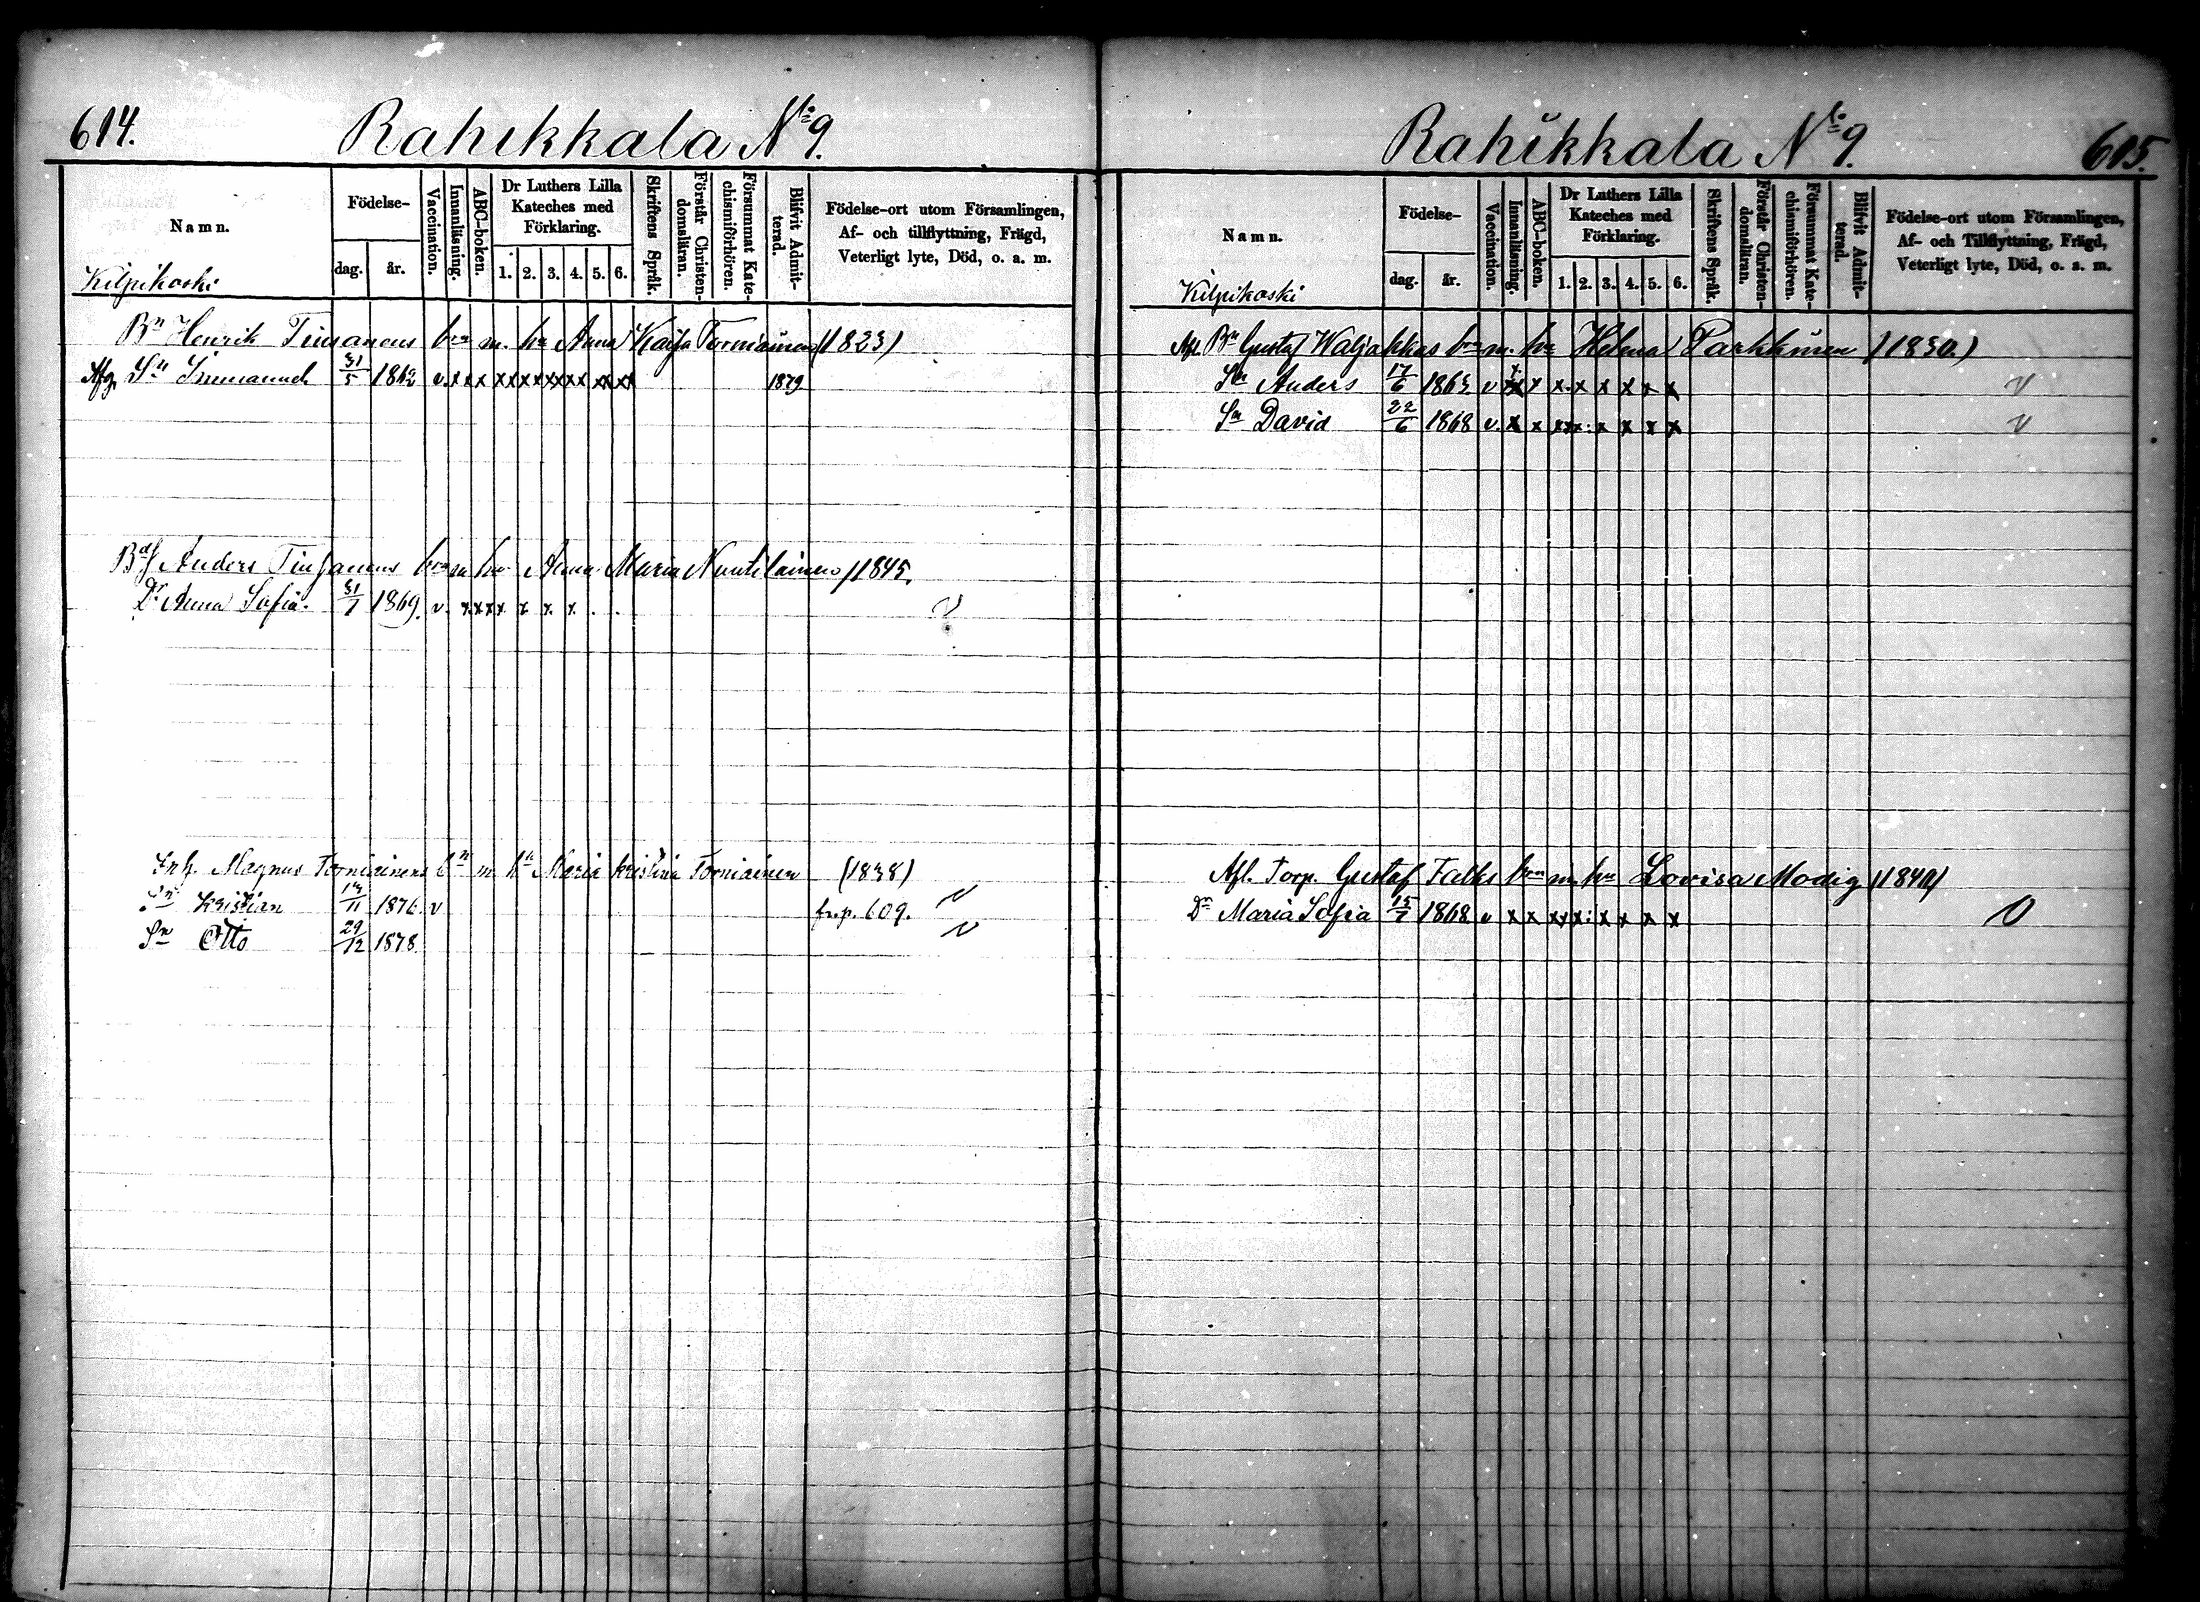 614.
Rahikkala No 9.
Namn.
Födelse-
dag.
år.
Vaccination.
Innanläsning.
ABC-boken.
Dr Luthers Lilla Kateches med Förklaring.
1. 2. 3. 4. 5. 6.
Skriftens Språk.
Förstår Christendomsläran.
Försummat Katechismiförhören.
Blifvit Admitterad.
Födelse-ort utom Församlingen,
Af- och tillflyttning, Frägd,
Veterligt lyte, Död, o. a. m.
Kilpikoski
Bn Henrik Tiusanens bn m. hu Anna Kaisa Torniainen (1823)
Afg. Sn Immanuel 31/5 1862 v. x x x x x x x x x x x x x x 1879
Anders Tiusanens bn m hu Anna Maria Nuutilainen (1845.
Dr Anna Sofia. 31/7 1869. v. x x x x x x x . .
Inh. Magnus Torniainens bn m hu Maria Kristina Torniainen (1838)
Sn Kristian 13/11 1876 v fr. p. 609. v
Sn Otto 29/12 1878. v
Rahikkala No 9.
615.
Namn.
Födelse-
dag.
år.
Vaccination.
Innanläsning.
ABC-boken.
Dr Luthers Lilla Kateches med Förklaring.
1. 2. 3. 4. 5. 6.
Skriftens Språk.
Förstår Christendomsläran.
Försummat Katechismiförhören.
Blifvit Admitterad.
Födelse-ort utom Församlingen,
Af- och Tillflyttning, Frägd,
Veterligt lyte, Död, o. a. m.
Kilpikoski
Afl. Bn Gustaf Waljakkas bn m. hu Helena Parkkinen (1830.)
Sn Anders 17/6 1863 v x x x x x x x x v
Sn David 22/6 1868 v. x x x x x : x x x x v
Afl. Torp. Gustaf Falks bn m. hu Lovisa Modig (1840)
Dr Maria Sofia 15/7 1868 v x x x x x : x x x x v